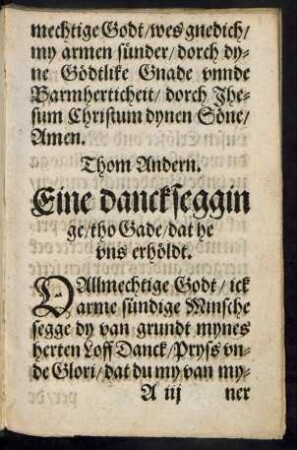 mechtige Godt/wes gnedich/
my armen sünder/dorch dy-
ne Gödtlike Gnade vnnde
Barmherticheit/dorch Jhe-
sum Christum dynen Söne/
Amen.
Thom Andern.
Eine danckseggin
ge/tho Gade/dat he
vns erhöldt.
O Allmechtige Godt/ick
arme sündige Minsche
segge dy van grundt mynes
herten Loff Danck/Pryss vn-
de Glori/dat du my van my-
A iij ner